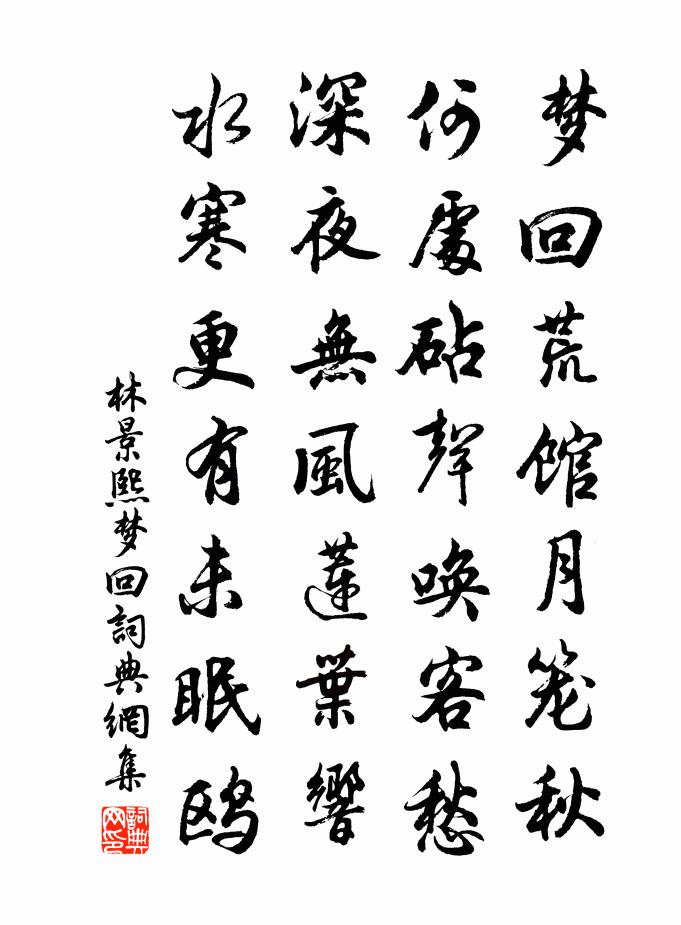 梦回荒馆月笼秋
何處砧聲唤客愁
深夜無風蓮葉響
水寒更有未眠鸥
林景熙梦回詞典網集
詞典网印